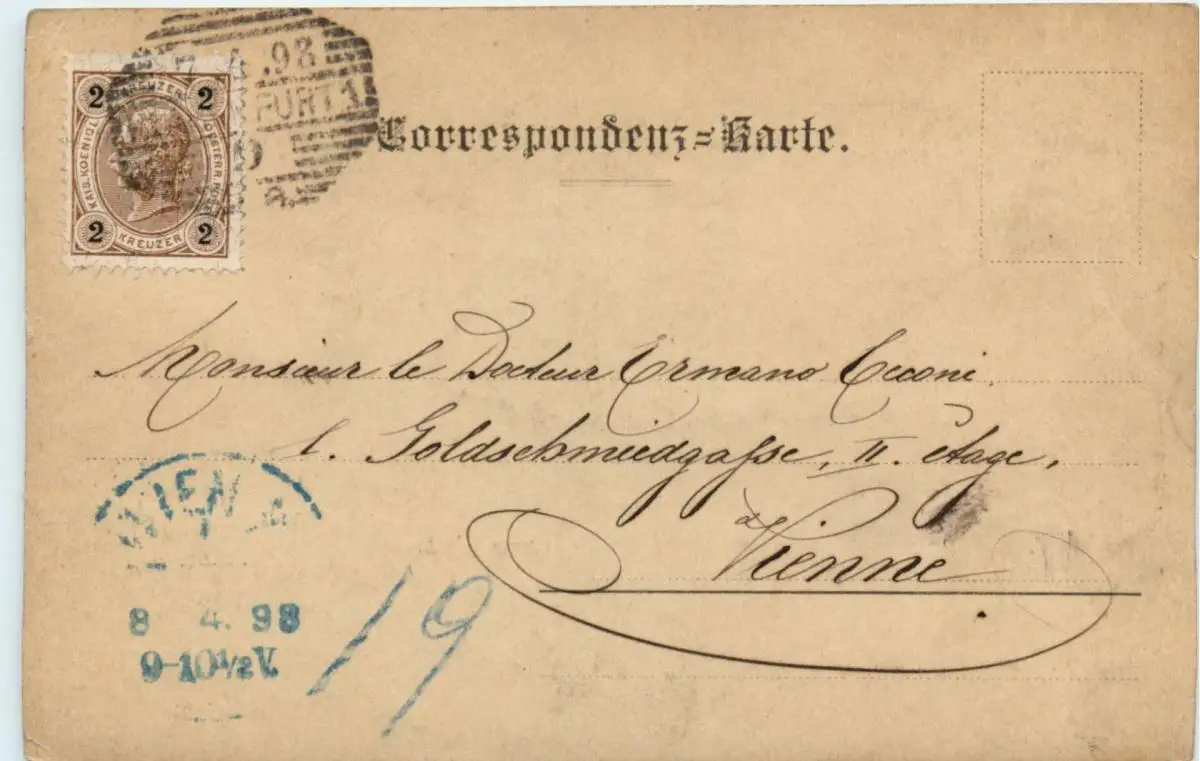 2 KREUZER 2
KAIS. KOENIGL. OESTERR. POST
2 KREUZER 2
4.98
FURT 1
Correspondenz=Karte.
Monsieur le Docteur Ermano Ceconi.
1. Goldschmiedgasse, II. étage,
à Vienne
WIEN
8 4. 98
9-10½V.
19